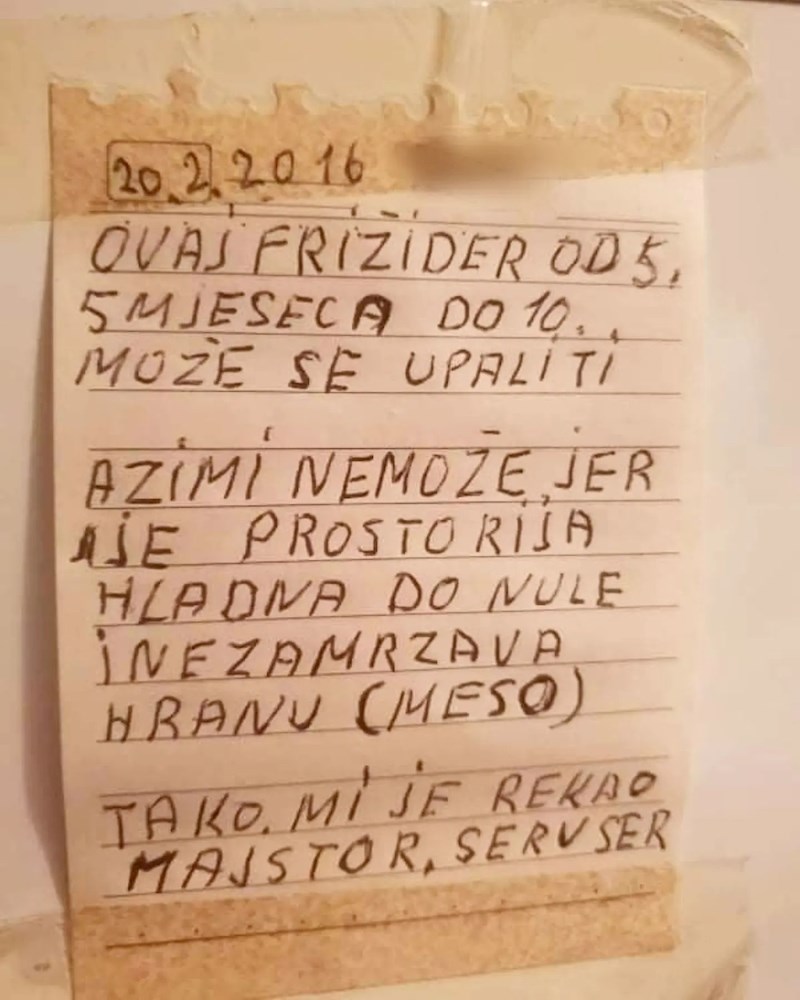 20.2.2016
OVAJ FRIŽIDER OD 5.
5 MJESECA DO 10.
MOŽE SE UPALITI
A ZIMI NEMOŽE, JER
JE PROSTORIJA
HLADNA DO NULE
I NEZAMRZAVA
HRANU (MESO)
TAKO. MI JE REKAO
MAJSTOR, SERVSER